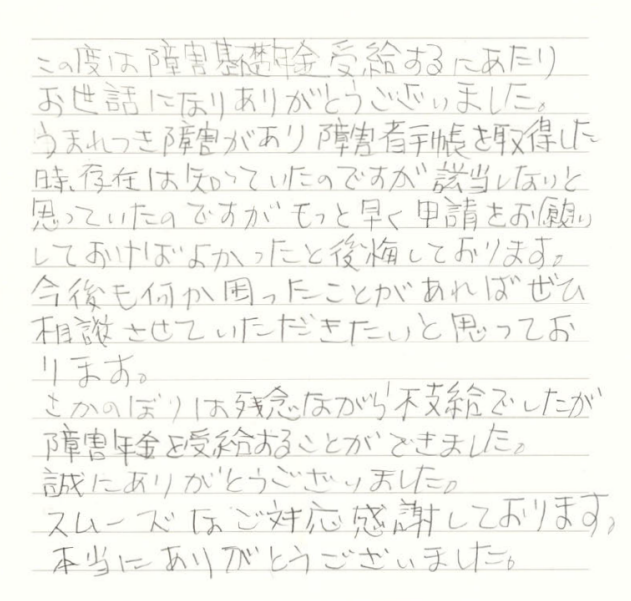 この度は障害基礎年金受給するにあたり
お世話になりありがとうございました。
うまれつき障害があり障害者手帳を取得した
時、存在は知っていたのですが該当しないと
思っていたのですがもっと早く申請をお願い
しておけばよかったと後悔しております。
今後も何か困ったことがあればぜひ
相談させていただきたいと思ってお
ります。
さかのぼりは残念ながら不支給でしたが
障害年金を受給することができました。
誠にありがとうございました。
スムーズなご対応感謝しております。
本当にありがとうございました。